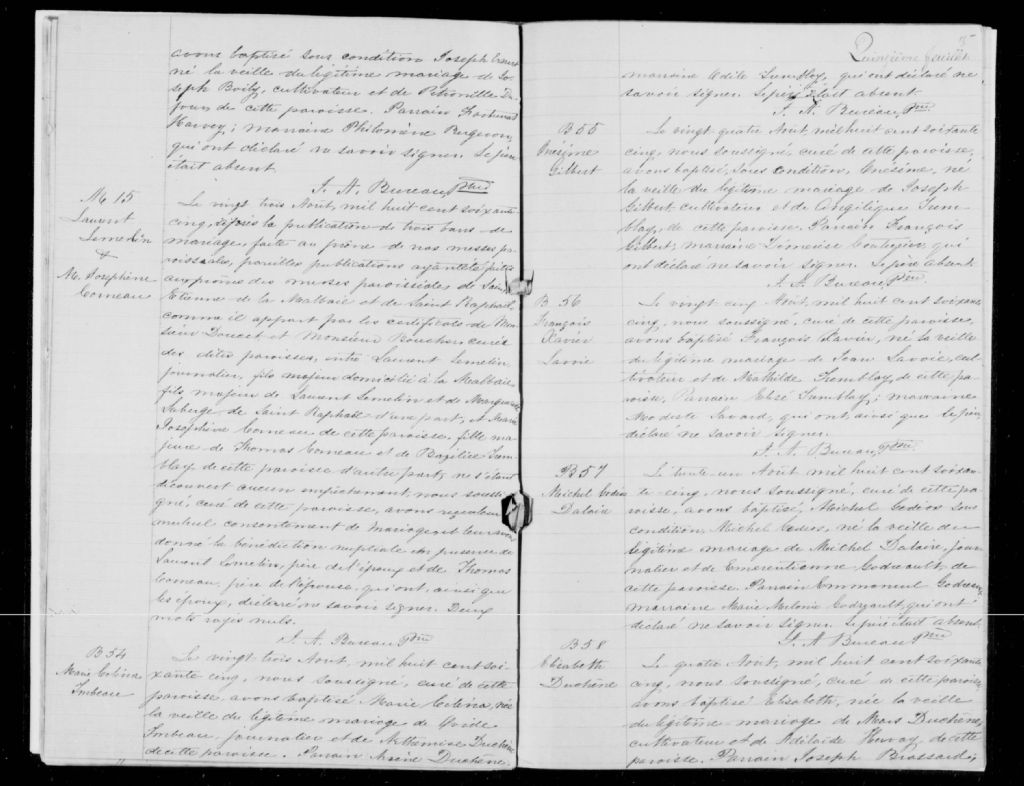 avons baptisé sous condition Joseph Ernest
né la veille du légitime mariage de Jo-
seph Boily, cultivateur et de Pétronille Du-
four de cette paroisse. Parrain Fortunat
Harvey; marraine Philomène Bergeron,
qui ont déclaré ne savoir signer. Le père
était absent.
J. A. Bureau, Ptre
M 15
Laurent
Lemelin
&
M. Josephine
Comeau
Le vingt trois Aout, mil huit cent soixante
cinq, après la publication de trois bans de
mariage, faite au prône de nos messes pa-
roissiales, pareilles publications ayant été faites
au prône des messes paroissiales de Saint
Etienne de la Malbaie et de Saint Raphael,
comme il appert par les certificats de Mon-
sieur Doucet et Monsieur Bouchers curés
des dites paroisses, entre Laurent Lemelin
journalier, fils majeur domicilié à la Malbaie
fils majeur de Laurent Lemelin et de Marguerite
Laberge de Saint Raphael d'une part, et Marie
Josephine Comeau de cette paroisse, fille ma-
jeure de Thomas Comeau et de Basilice Trem-
blay de cette paroisse d'autre part; ne s'étant
découvert aucun empêchement, nous soussi-
gné, curé de cette paroisse, avons reçu leur
mutuel consentement de mariage et leur avons
donné la bénédiction nuptiale en presence de
Laurent Lemelin, père de l'époux et de Thomas
Comeau, père de l'épouse, qui ont, ainsi que
les époux, déclaré ne savoir signer. Deux
mots rayés nuls.
J. A. Bureau Ptre
B 54
Marie Celina
Imbeau
Le vingt trois Aout, mil huit cent soi-
xante cinq, nous soussigné, curé de cette
paroisse avons baptisé Marie Celina, née
la veille du légitime mariage de Ovide
Imbeau, journalier et de Arthémise Duchêne
de cette paroisse. Parrain Duchêne
marraine Odile Tremblay, qui ont déclaré ne
savoir signer. Le père était absent.
J. A. Bureau, Ptre
B 55
Onésime
Gilbert
Le vingt quatre Aout, mil huit cent soixante
cinq, nous soussigné, curé de cette paroisse,
avons baptisé, sous condition, Onésime, né
la veille du légitime mariage de Joseph
Gilbert cultivateur et de Angélique Trem-
blay, de cette paroisse. Parrain François
Gilbert; marraine qui
ont déclaré ne savoir signer. Le père absent.
J. A. Bureau Ptre
B 56
François
Xavier
Savoie
Le vingt cinq Aout, mil huit cent soixante
cinq, nous soussigné, curé de cette paroisse,
avons baptisé François Xavier, né la veille
du légitime mariage de Jean Savoie, cul-
tivateur et de Mathilde Tremblay, de cette pa-
roisse. Parrain Elisé Tremblay; marraine
Modeste Savard, qui ont, ainsi que le père,
déclaré ne savoir signer.
J. A. Bureau Ptre
B 57
Michel Godios
Dalaire
Le trente un Aout mil huit cent soixan-
te cinq, nous soussigné, curé de cette pa-
roisse, avons baptisé, Michel Godios sous
condition, Michel né la veille du
légitime mariage de Michel Dalaire, jour-
nalier et de Emerentienne Godreault, de
cette paroisse. Parrain Emmanuel Godreau,
marraine Marie Godreault, qui ont
déclaré ne savoir signer. Le père était absent.
J. A Bureau Ptre
B 58
Elisabeth
Duchêne
Le quatre Aout, mil huit cent soixante
cinq, nous soussigné, curé de cette paroisse,
avons baptisé Elisabeth, née la veille
du légitime mariage de Mars Duchêne,
cultivateur et de Adélaide Harvay, de cette
paroisse. Parrain Joseph Brassard;